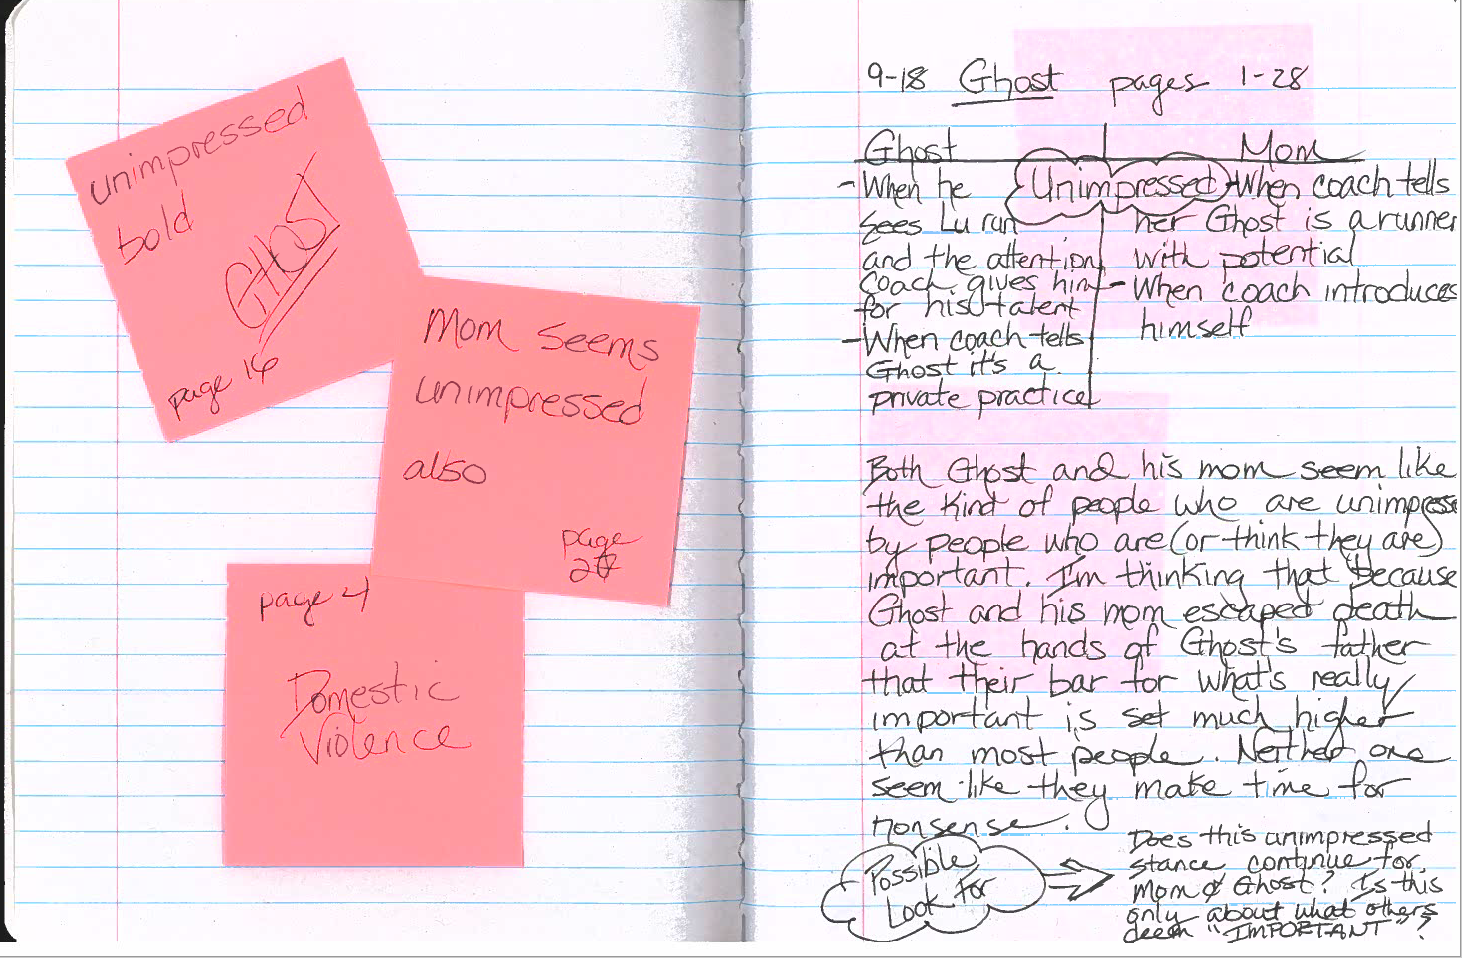 unimpressed
bold
GHOST
page 16
Mom seems
unimpressed
also
page
page 4
Domestic
Violence
9-18 Ghost pages 1-28
Ghost Mom
Unimpressed
- When he
sees Lu run
and the attention
Coach gives him
for his talent
- When coach tells
Ghost it's a
private practice
- When coach tells
her Ghost is a runner
with potential
- When coach introduces
himself
Both Ghost and his mom seem like
the kind of people who are unimpress
by people who are (or think they are)
important. I'm thinking that because
Ghost and his mom escaped death
at the hands of Ghost's father
that their bar for what's really
important is set much higher
than most people. Neither one
seem like they make time for
nonsense.
Possible
Look For
Does this unimpressed
stance continue for
Mom & Ghost? Is this
only about what others
deem "IMPORTANT"?